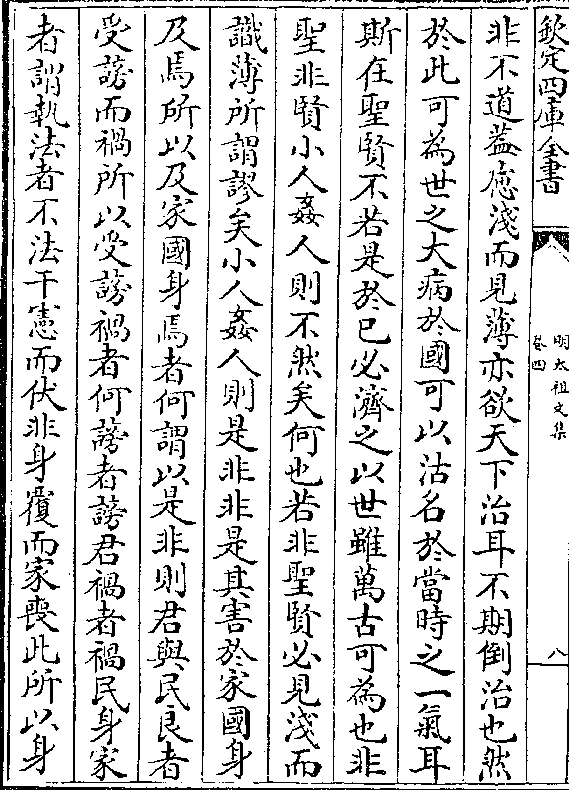 欽定四庫全書
明太祖文集
卷四
八
非不道蓋慮淺而見薄亦欲天下治耳不期倒治也然
於此可為世之大病於國可以沽名於當時之一氣耳
斯在聖賢不若是於已必濟之以世雖萬古可為也非
聖非賢小人姦人則不然矣何也若非聖賢必見淺而
識薄所謂謬矣小人姦人則是非非是其害於家國身
及焉所以及家國身焉者何謂以是非則君與民良者
受謗而禍所以受謗禍者何謗者謗君禍者禍民身家
者謂執法者不法干憲而伏非身覆而家喪此所以身